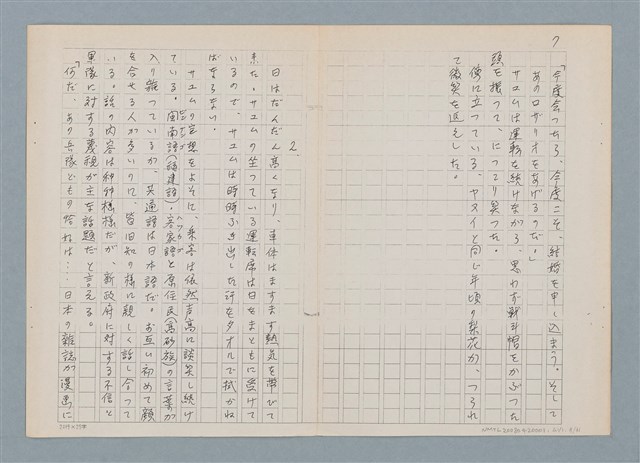 7
「今度会つたら、今度こそ、結婚を申し込まう。そして
あのロザリオをあげるのだ。」
サユムは運転を続けながら、思わず戦斗帽をかぶつた
頭を振って、にっこり笑つた。
傍に立っている、ヤスイと同じ年頃の梨花が、つられ
て微笑を返えした。
2.
日はだんだん高くなり、車体はますます熱気を帯びて
来た。サユムの坐っている運転席は日をまともに受けて
いるので、サユムは時時ふき出した汗をタオルで拭かね
ばならない。
サユムの妄想をよそに、乗客は依然声高に談笑し続け
ている。閩南語(福建語)・客家語と原住民(高砂族)の言葉が
入り雑っているが、共通語は日本語だ。お互い初めて顔
を合せる人が多いのに、皆旧知の様に親しく話し合って
いる。話の内容は種種様様だが、新政府に対する不信と
軍隊に対する蔑視が主な話題だと言える。
「何だ、あの兵隊どもの恰好は…日本の雑誌が漫画に